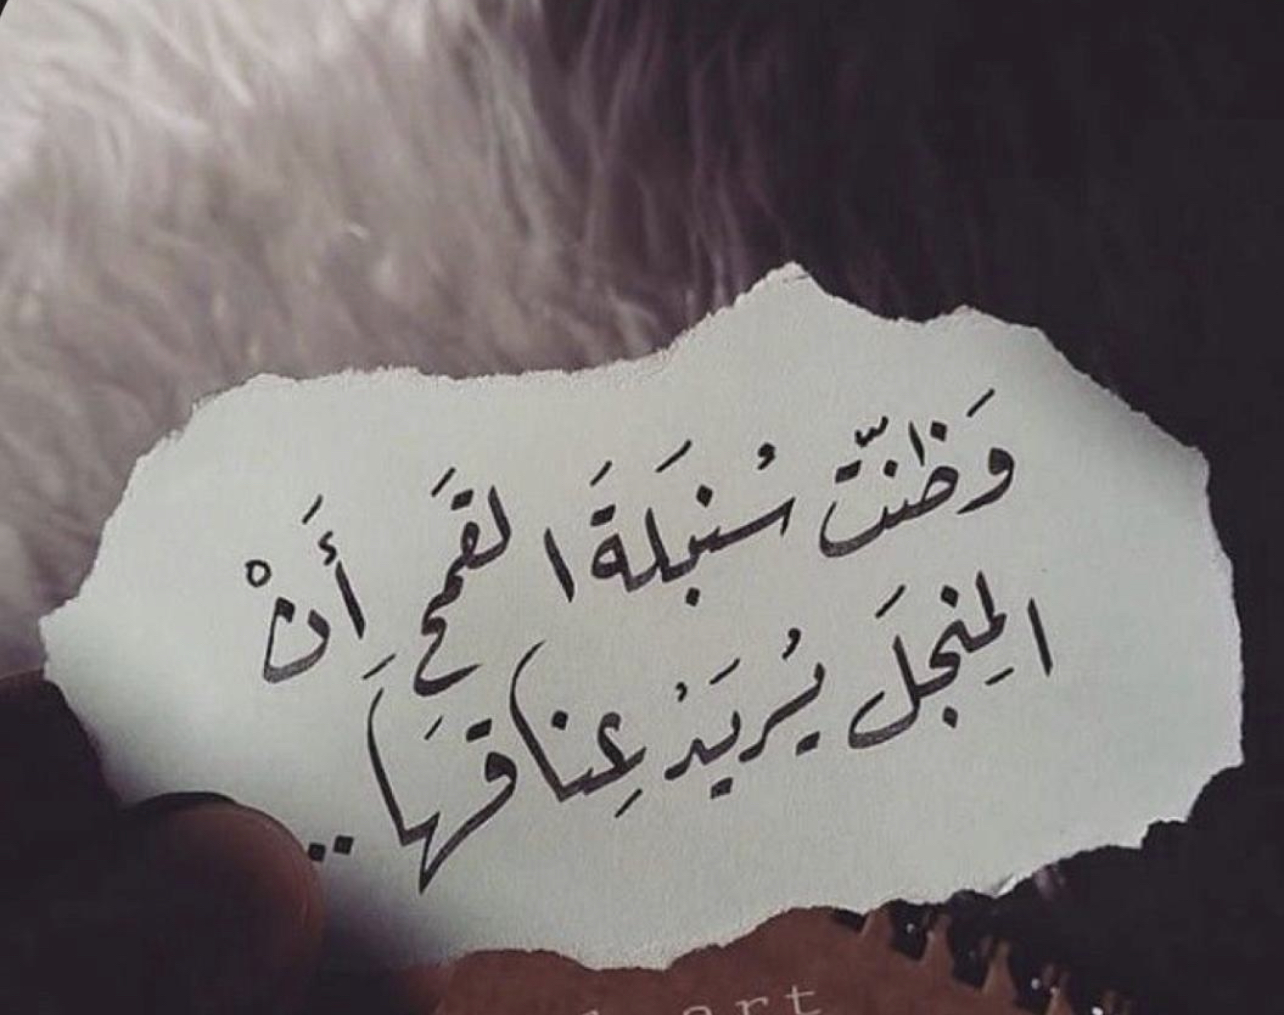 وَظنّت سُنبَلَةَ القَمحِ أَنْ
المِنجَل يُريَدُ عِناقهَا ..
art